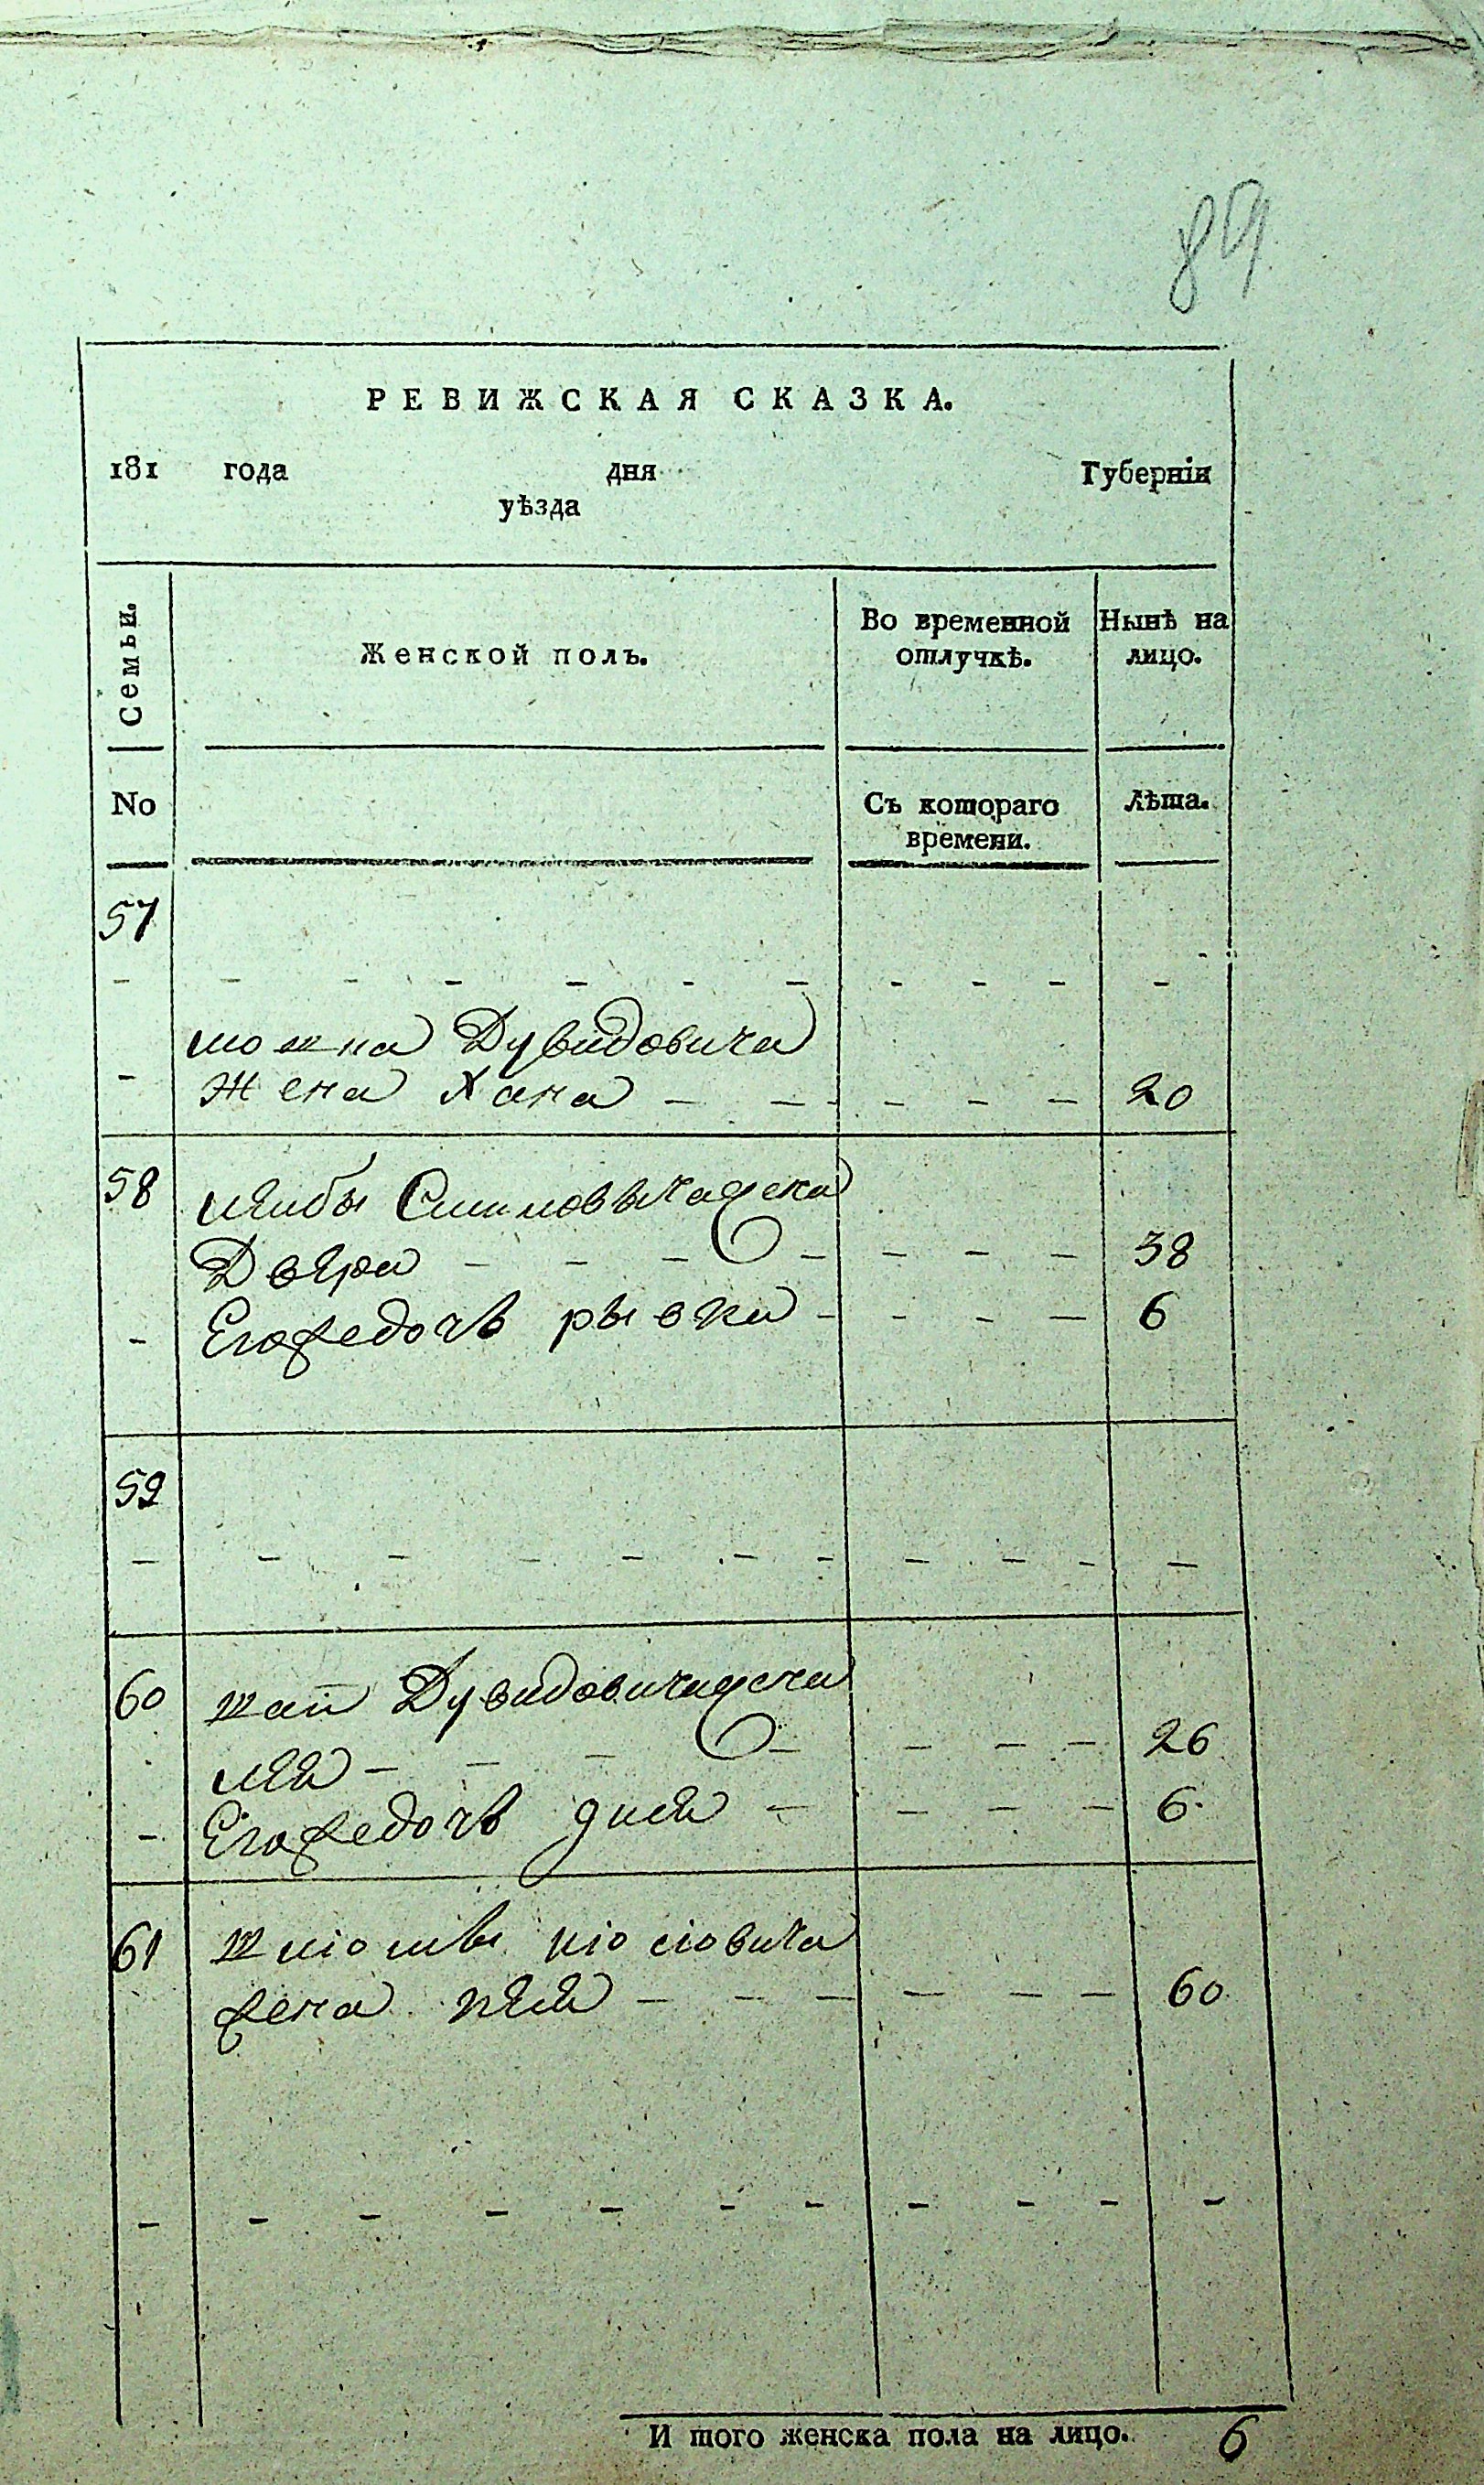 89
РЕВИЖСКАЯ СКАЗКА.
181 года дня Губернія
уѣзда
Семьи. Женской полъ. Во временной отлучкѣ. Нынѣ на лицо.
No Съ котораго времени. Лѣта.
57
- - - - - - - - - - -
Дувидовича
- Жена Хана - - - - - 20
58 Лейбы
Двера - - - - - - 38
- Его же дочь рывка - - - - 6
59
- - - - - - - - - - -
60 Дувидовича жена
лея - - - - - - - 26
- Его же дочь - - - - 6
61
жена - - - - - - 60
- - - - - - - - - - -
И того женска пола на лицо. 6